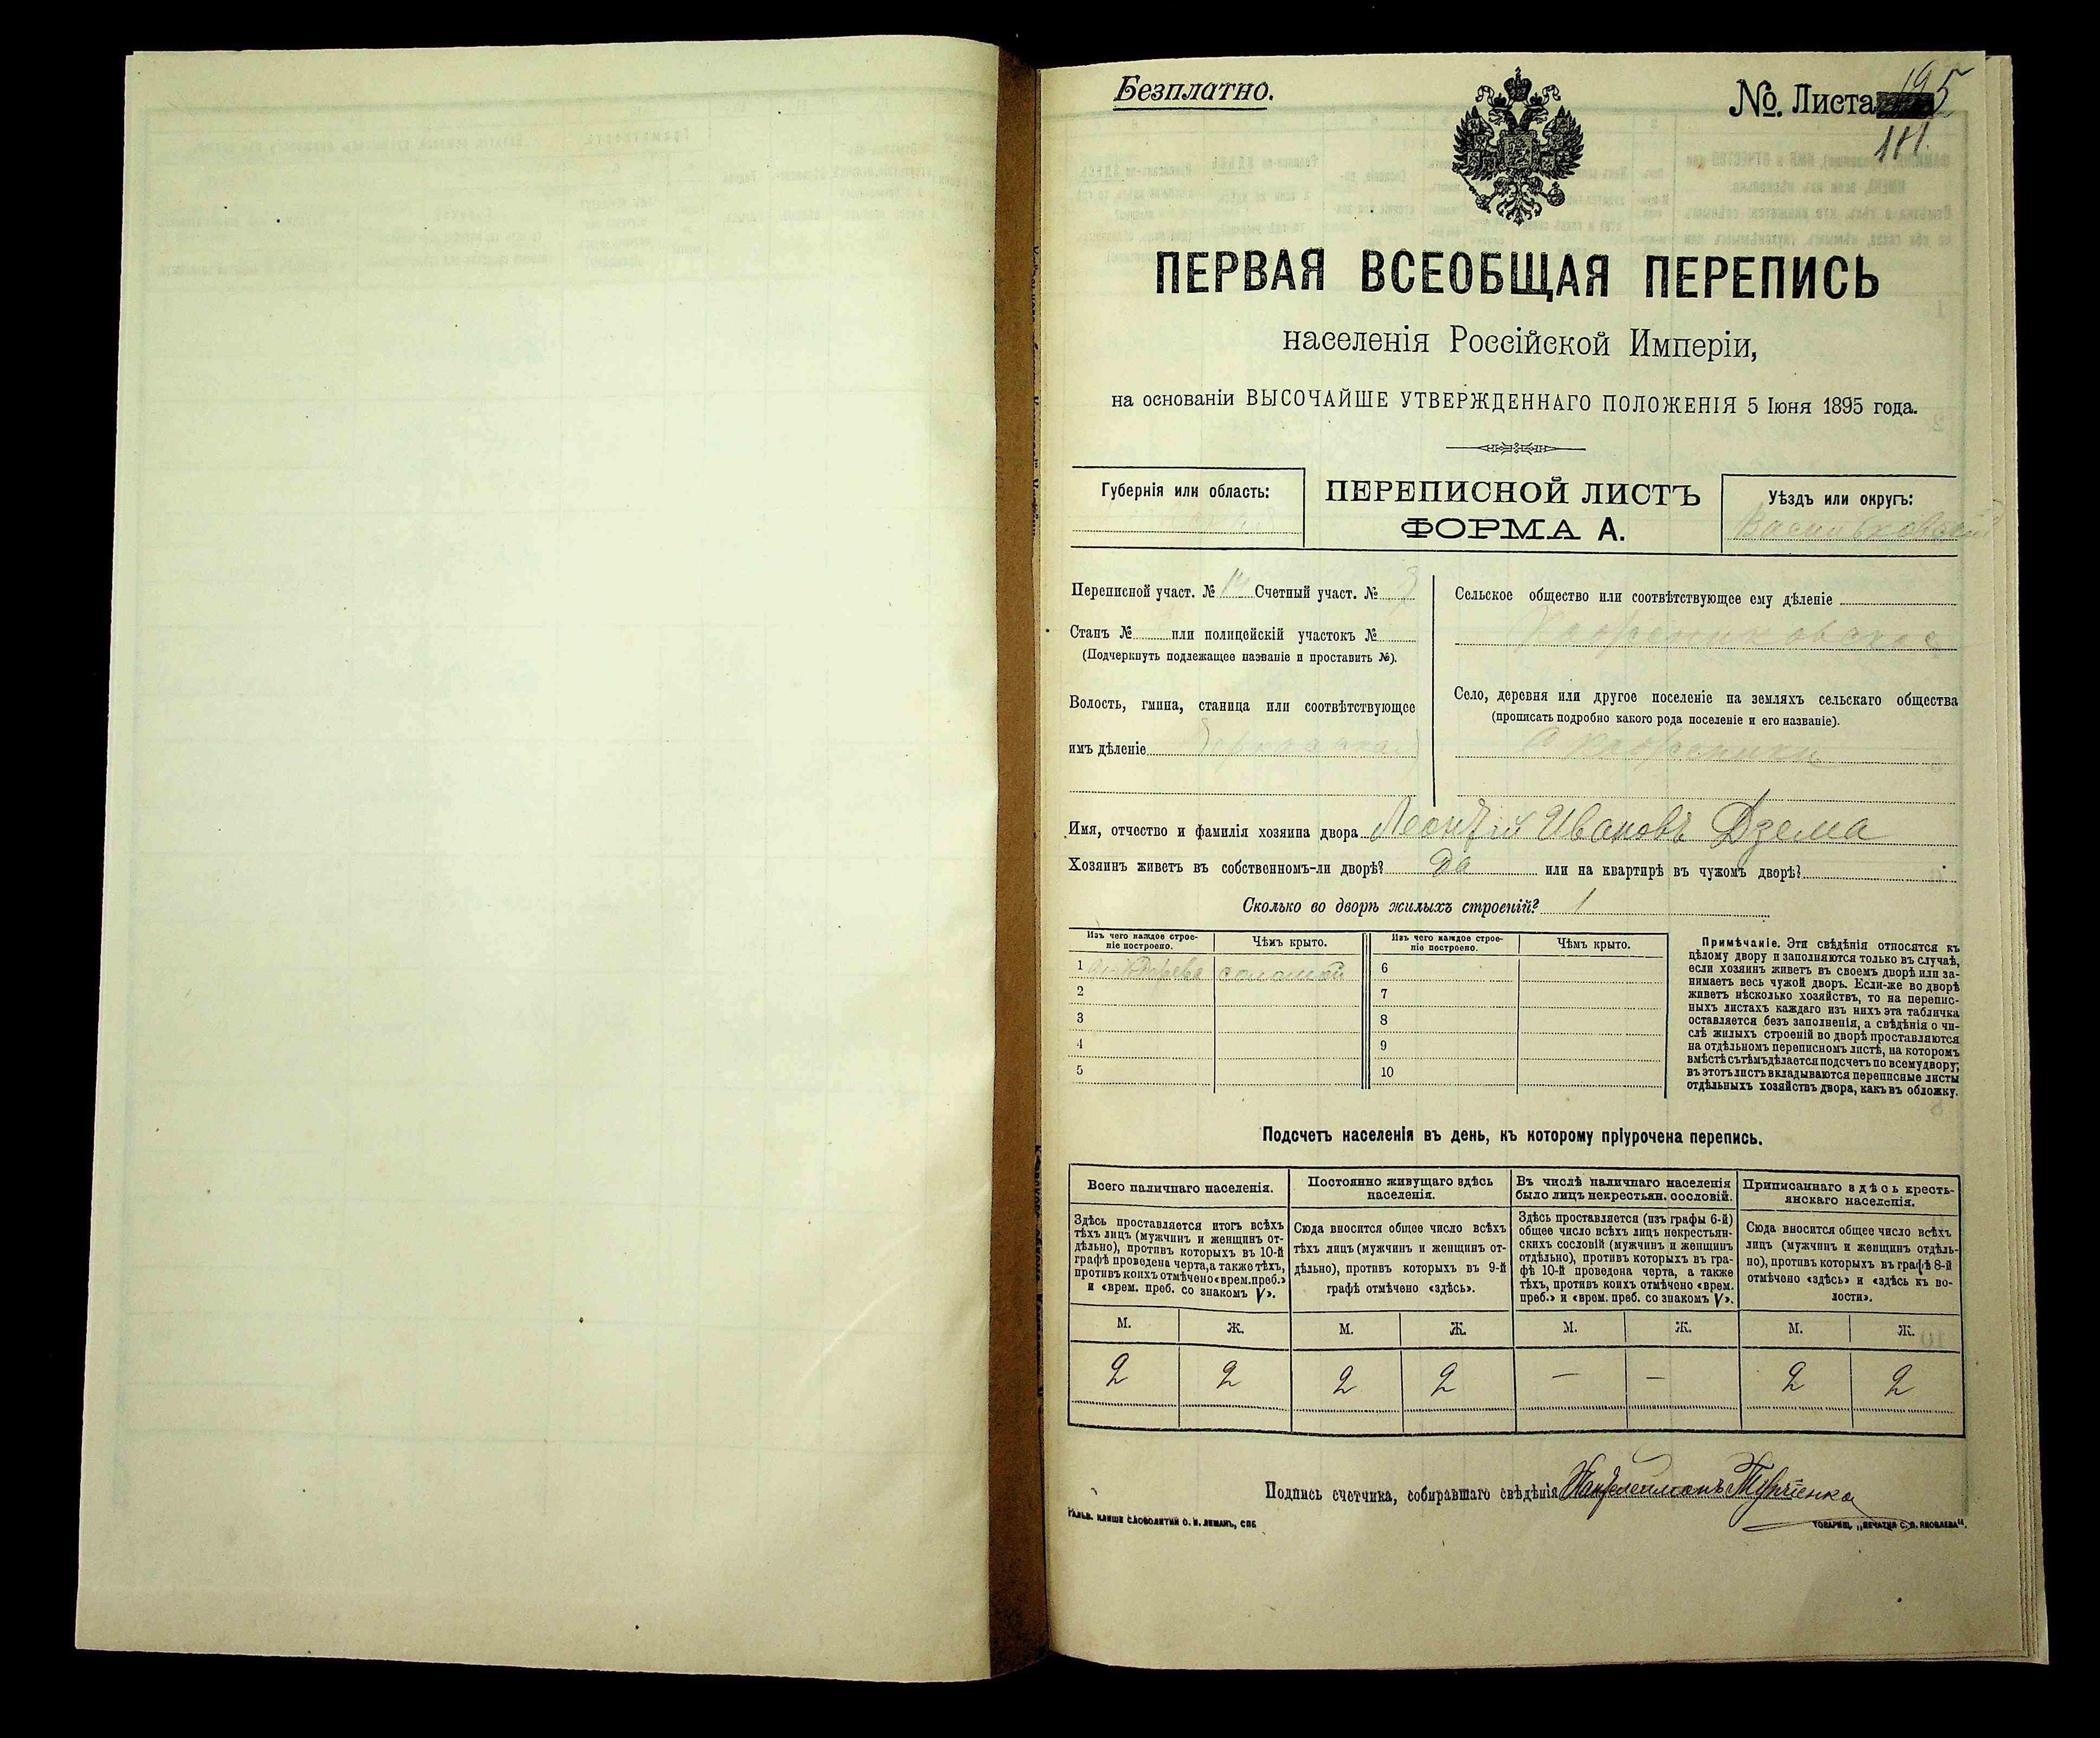 Безплатно.
№. Листа 195
ПЕРВАЯ ВСЕОБЩАЯ ПЕРЕПИСЬ
населенія Россійской Имперіи,
на основаніи ВЫСОЧАЙШЕ УТВЕРЖДЕННАГО ПОЛОЖЕНІЯ 5 Іюня 1895 года.
Губернія или область:
ПЕРЕПИСНОЙ ЛИСТЪ
ФОРМА А.
Уѣздъ или округъ:
Васильковскій
Переписной участ. № 14 Счетный участ. № 3
Станъ № или полицейскій участокъ №
(Подчеркнуть подлежащее названіе и проставить №).
Волость, гмина, станица или соотвѣтствующее
имъ дѣленіе
Сельское общество или соотвѣтствующее ему дѣленіе
Село, деревня или другое поселеніе на земляхъ сельскаго общества
(прописать подробно какого рода поселеніе и его названіе).
Имя, отчество и фамилія хозяина двора Леонтій Ивановъ Дзема
Хозяинъ живетъ въ собственномъ-ли дворѣ? да или на квартирѣ въ чужомъ дворѣ?
Сколько во дворѣ жилыхъ строеній? 1
Изъ чего каждое строе-
ніе построено.
Чѣмъ крыто.
1 дерева соломой
2
3
4
5
Изъ чего каждое строе-
ніе построено.
Чѣмъ крыто.
6
7
8
9
10
Примѣчаніе. Эти свѣдѣнія относятся къ
цѣлому двору и заполняются только въ случаѣ,
если хозяинъ живетъ въ своемъ дворѣ или за-
нимаетъ весь чужой дворъ. Если-же во дворѣ
живетъ нѣсколько хозяйствъ, то на перепис-
ныхъ листахъ каждаго изъ нихъ эта табличка
оставляется безъ заполненія, а свѣдѣнія о чи-
слѣ жилыхъ строеній во дворѣ проставляются
на отдѣльномъ переписномъ листѣ, на которомъ
вмѣстѣ съ тѣмъ дѣлается подсчетъ по всему двору;
въ этотъ листъ вкладываются переписные листы
отдѣльныхъ хозяйствъ двора, какъ въ обложку.
Подсчетъ населенія въ день, къ которому пріурочена перепись.
Всего наличнаго населенія.
Здѣсь проставляется итогъ всѣхъ
тѣхъ лицъ (мужчинъ и женщинъ от-
дѣльно), противъ которыхъ въ 10-й
графѣ проведена черта, а также тѣхъ,
противъ коихъ отмѣчено «врем. преб.»
и «врем. преб. со знакомъ V».
Постоянно живущаго здѣсь
населенія.
Сюда вносится общее число всѣхъ
тѣхъ лицъ (мужчинъ и женщинъ от-
дѣльно), противъ которыхъ въ 9-й
графѣ отмѣчено «здѣсь».
Въ числѣ наличнаго населенія
было лицъ некрестьян. сословій.
Здѣсь проставляется (изъ графы 6-й)
общее число всѣхъ лицъ некрестьян-
скихъ сословій (мужчинъ и женщинъ
отдѣльно), противъ которыхъ въ гра-
фѣ 10-й проведена черта, а также
тѣхъ, противъ коихъ отмѣчено «врем.
преб.» и «врем. преб. со знакомъ V».
Приписаннаго здѣсь кресть-
янскаго населенія.
Сюда вносится общее число всѣхъ
лицъ (мужчинъ и женщинъ отдѣль-
но), противъ которыхъ въ графѣ 8-й
отмѣчено «здѣсь» и «здѣсь къ во-
лости».
М. Ж. М. Ж. М. Ж. М. Ж.
2 2 2 2 — — 2 2
Подпись счетчика, собиравшаго свѣдѣнія
ГАЛЬВ. КЛИШЕ СЛОВОЛИТНИ О. И. ЛЕМАНЪ, СПБ
ТОВАРИЩ. „ПЕЧАТНЯ С. П. ЯКОВЛЕВА“.